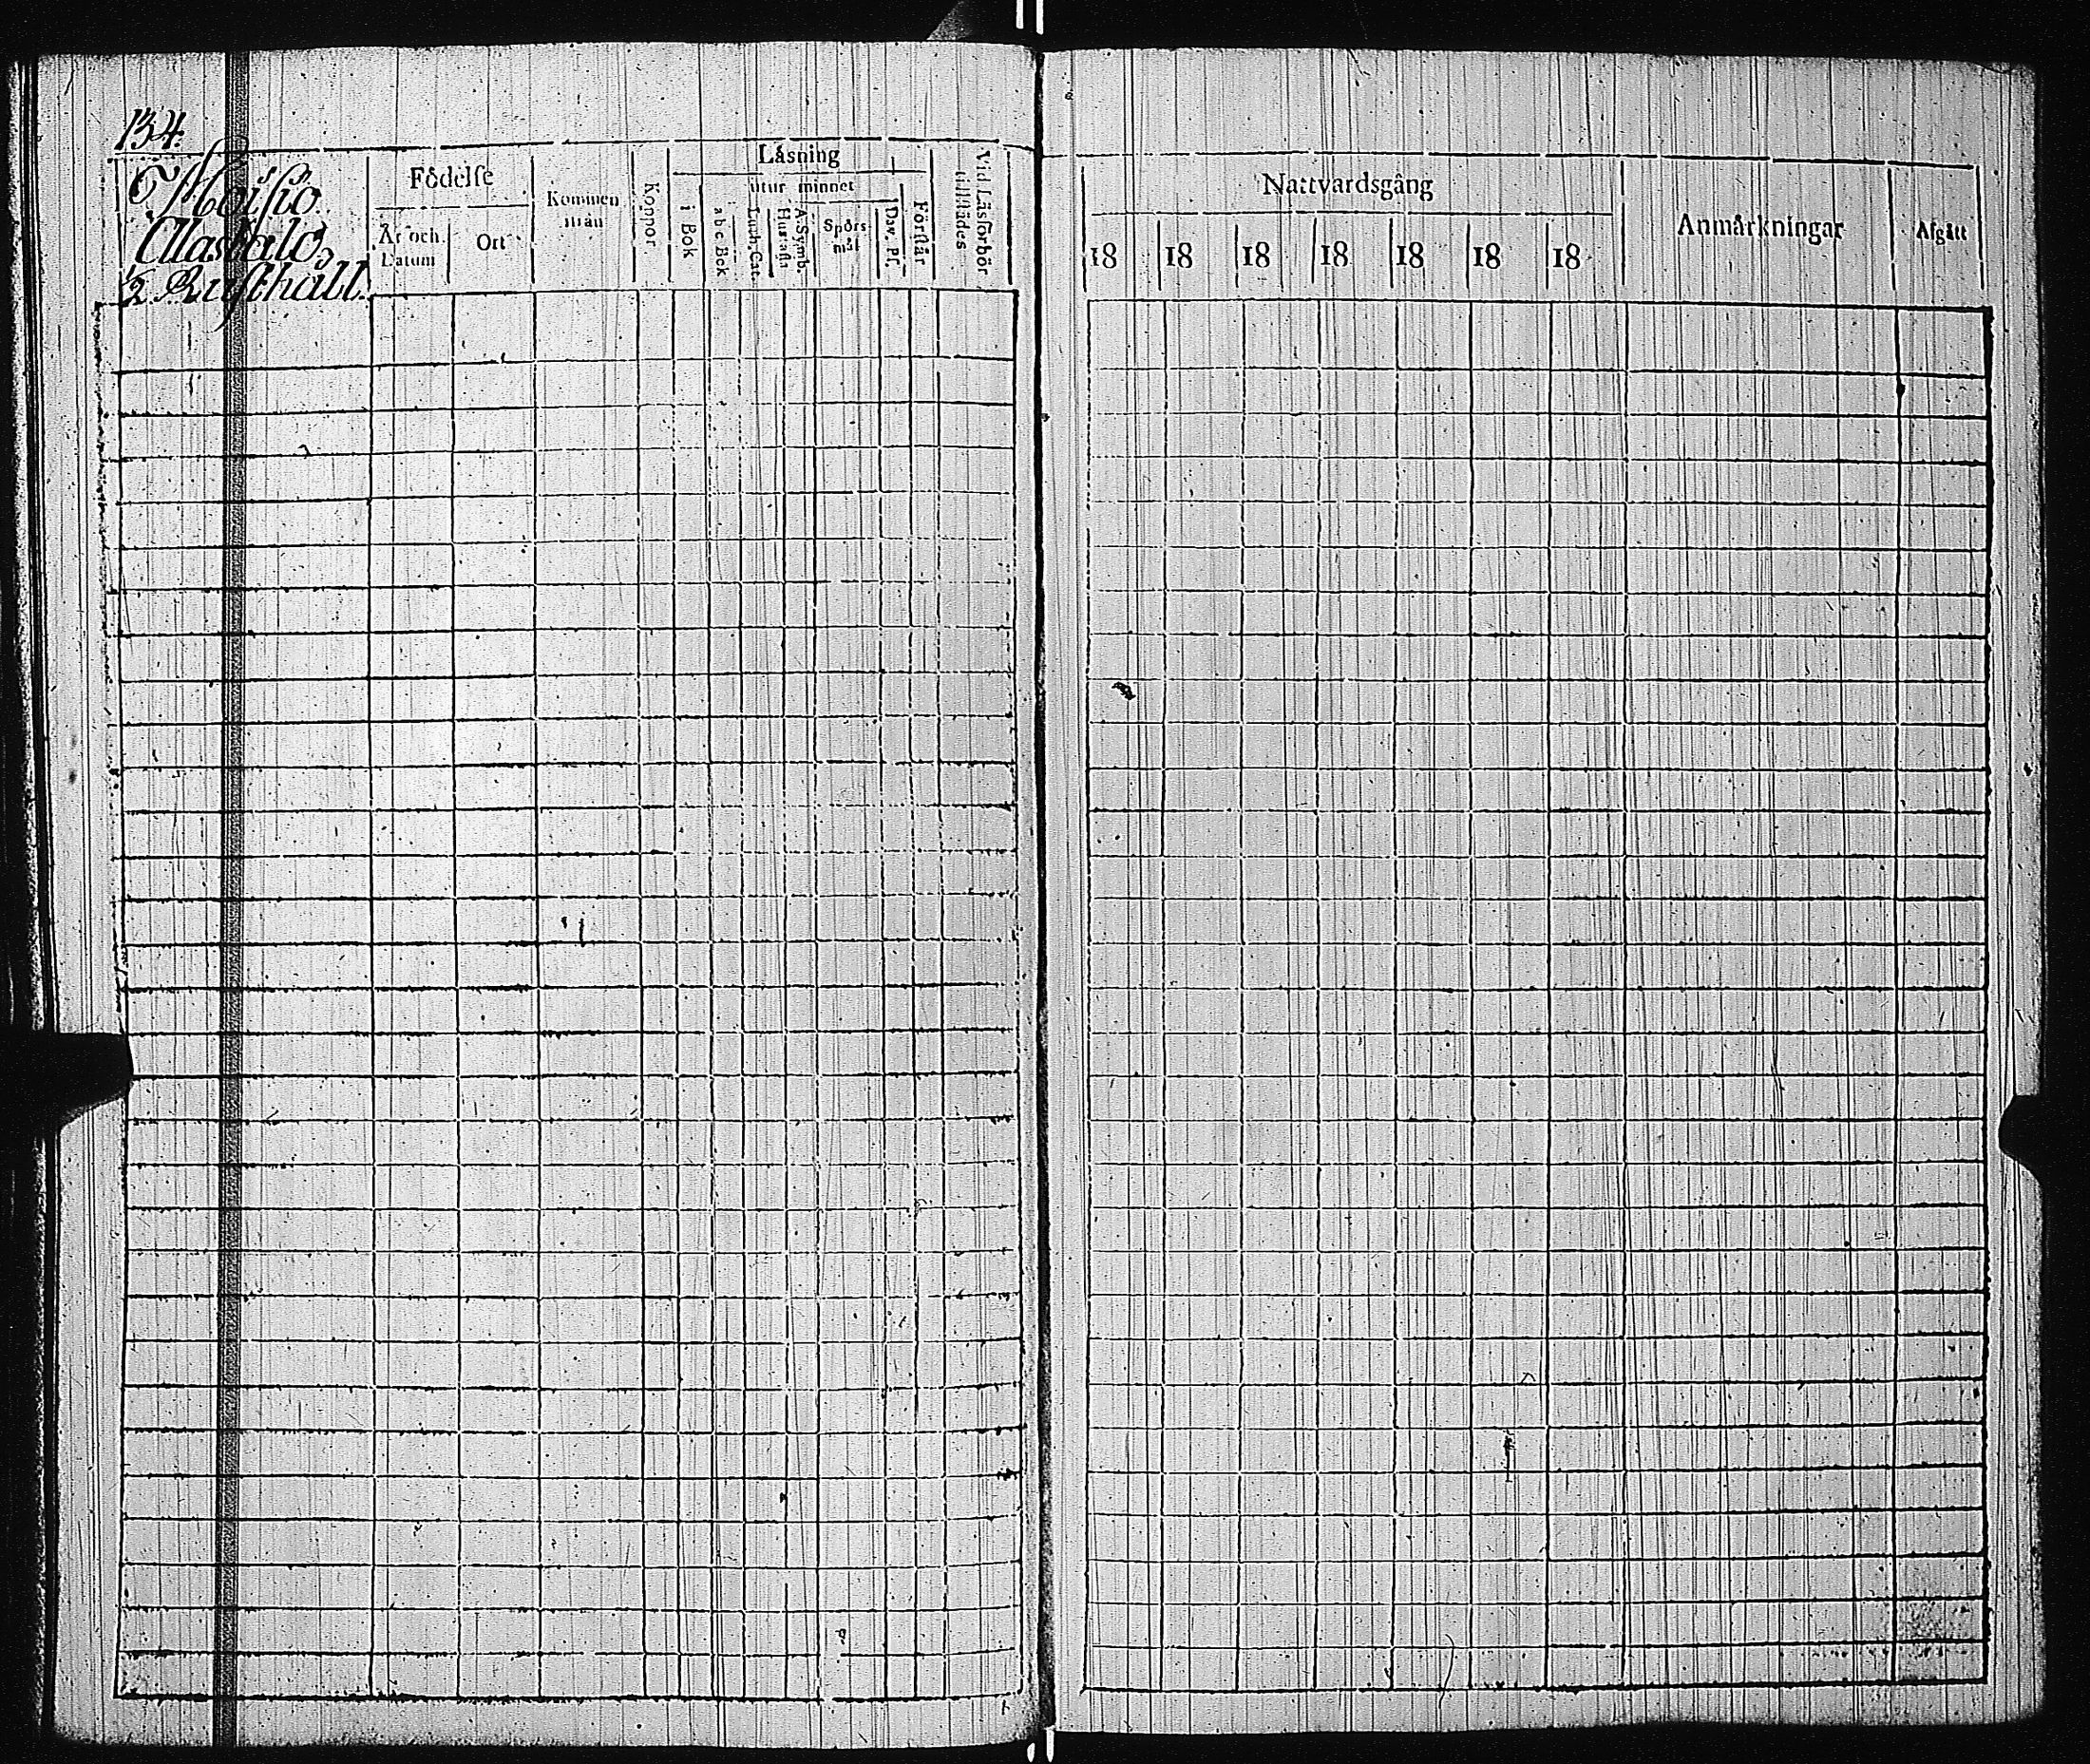 134.
Moisio.
Alastalo,
1/2 Rusthåll.
Födelse
År och Datum
Ort
Kommen ifrån
Koppor
Läsning
i Bok
utur minnet
a b c Bok
Luth. Cat.
Hustafl.
A. Symb.
Spörs-mål
Dav. Ps.
Förstår
Vid Läsförhör tillstädes
Nattvardsgång
18 18 18 18 18 18 18
Anmärkningar
Afgått